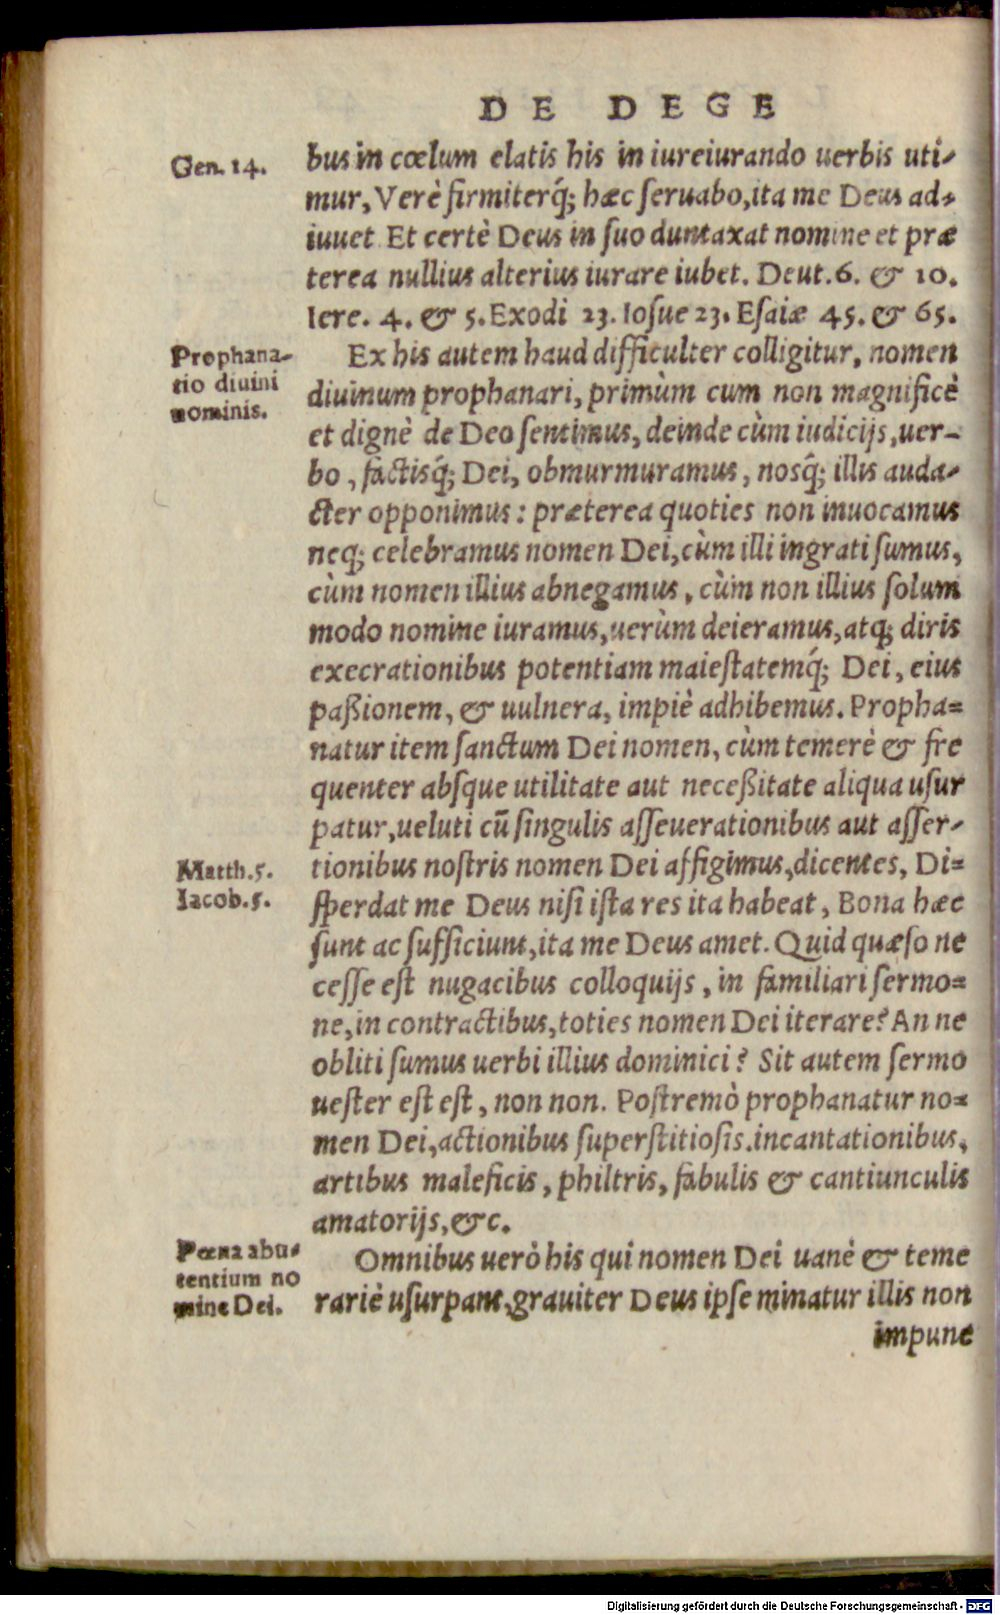 DE DEGE
Gen. 14.
bus in cœlum elatis his in iureiurando uerbis uti-
mur, Verè firmiterq́; hæc seruabo, ita me Deus ad-
iuuet. Et certè Deus in suo duntaxat nomine et præ
terea nullius alterius iurare iubet. Deut. 6. & 10.
Iere. 4. & 5. Exodi 23. Iosue 23. Esaiæ 45. & 65.
Prophana-
tio diuini
nominis.
Ex his autem haud difficulter colligitur, nomen
diuinum prophanari, primùm cum non magnificè
et dignè de Deo sentimus, deinde cùm iudicijs, uer-
bo, factisq́; Dei, obmurmuramus, nosq́; illis auda-
cter opponimus: præterea quoties non inuocamus
neq; celebramus nomen Dei, cùm illi ingrati sumus,
cùm nomen illius abnegamus, cùm non illius solum
modo nomine iuramus, uerùm deieramus, atq; diris
execrationibus potentiam maiestatemq́; Dei, eius
paßionem, & uulnera, impiè adhibemus. Propha=
natur item sanctum Dei nomen, cùm temerè & fre
quenter absque utilitate aut neceßitate aliqua usur
patur, ueluti cũ singulis asseuerationibus aut asser-
Matth. 5.
Iacob. 5.
tionibus nostris nomen Dei affigimus, dicentes, Di=
sperdat me Deus nisi ista res ita habeat, Bona hæc
sunt ac sufficiunt, ita me Deus amet. Quid quæso ne
cesse est nugacibus colloquijs, in familiari sermo=
ne, in contractibus, toties nomen Dei iterare? An ne
obliti sumus uerbi illius dominici? Sit autem sermo
uester est est, non non. Postremò prophanatur no=
men Dei, actionibus superstitiosis. incantationibus,
artibus maleficis, philtris, fabulis & cantiunculis
amatorijs, &c.
Pœna abu-
tentium no
mine Dei.
Omnibus uerò his qui nomen Dei uanè & teme
rariè usurpant, grauiter Deus ipse minatur illis non
impune
Digitalisierung gefördert durch die Deutsche Forschungsgemeinschaft - DFG